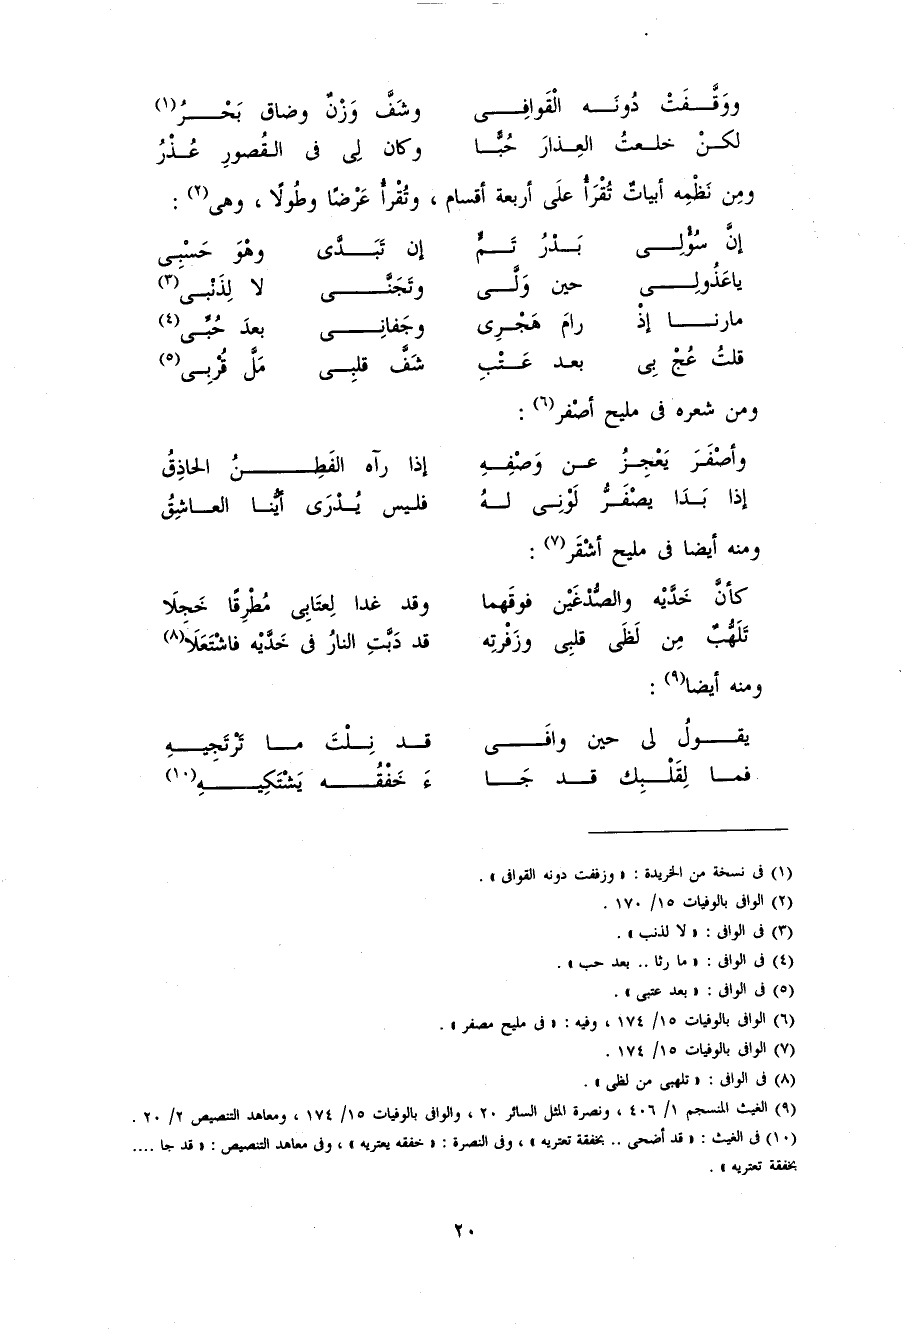 ووَقَّفَتْ دُونَه القَوافِى وشَفَّ وَزْنٌ وضاق بَحْرُ(١)
لكنْ خلعتُ العِذارَ حُبًّا وكان لِى فى القُصورِ عُذْرُ
ومِن نَظْمِه أبياتٌ تُقْرَأُ علَى أربعة أقسام ، وتُقْرأُ عَرْضًا وطُولًا ، وهى(٢) :
إنَّ سُؤْلِى بَدْرُ تَمٍّ إن تَبَدَّى وهْوَ حَسْبِى
ياعَذُولِى حين وَلَّى وتَجَنَّى لا لِذَنْبِى(٣)
مارنا إذْ رامَ هَجْرِى وجَفانِى بعدَ حُبِّى(٤)
قلتُ عُجْ بِى بعد عَتْبِ شَفَّ قلبِى مَلَّ قُرْبِى(٥)
ومن شعره فى مليح أصْفر(٦) :
وأصْفَرَ يَعْجِزُ عن وَصْفِهِ إذا رآه الفَطِنُ الحاذِقُ
إذا بَدَا يصْفَرُّ لَوْنِى لهُ فليس يُدْرَى أيُّنا العاشِقُ
ومنه أيضا فى مليح أشْقَر(٧) :
كأنَّ خَدَّيْه والصُّدْغَيْن فوقَهما وقد غدا لِعتَابِى مُطْرِقًا خَجِلَا
تَلَهُّبٌ مِن لَظَى قلبِى وزَفْرتِه قد دَبَّتِ النارُ فى خَدَّيْه فاشْتَعَلَا(٨)
ومنه أيضا(٩) :
يقولُ لى حين وافَى قد نِلْتَ ما تَرْتَجِيهِ
فما لِقَلْبِك قد جَا ءَ خَفْقُه يَشْتَكِيهِ(١٠)
(١) فى نسخة من الخريدة : « وزففت دونه القوافى » .
(٢) الوافى بالوفيات ١٥/ ١٧٠ .
(٣) فى الوافى : « لا لذنب » .
(٤) فى الوافى : « ما رثا .. بعد حب » .
(٥) فى الوافى : « بعد عتبى » .
(٦) الوافى بالوفيات ١٥/ ١٧٤ ، وفيه : « فى مليح مصفر » .
(٧) الوافى بالوفيات ١٥/ ١٧٤ .
(٨) فى الوافى : « تلهبى من لظى » .
(٩) الغيث المنسجم ١/ ٤٠٦ ، ونصرة المثل السائر ٢٠ ، والوافى بالوفيات ١٥/ ١٧٤ ، ومعاهد التنصيص ٢/ ٢٠ .
(١٠) فى الغيث : « قد أضحى .. بخفقة تعتريه » ، وفى النصرة : « خفقه يعتريه » ، وفى معاهد التنصيص : « قد جا ....
بخفقة تعتريه » .
٢٠